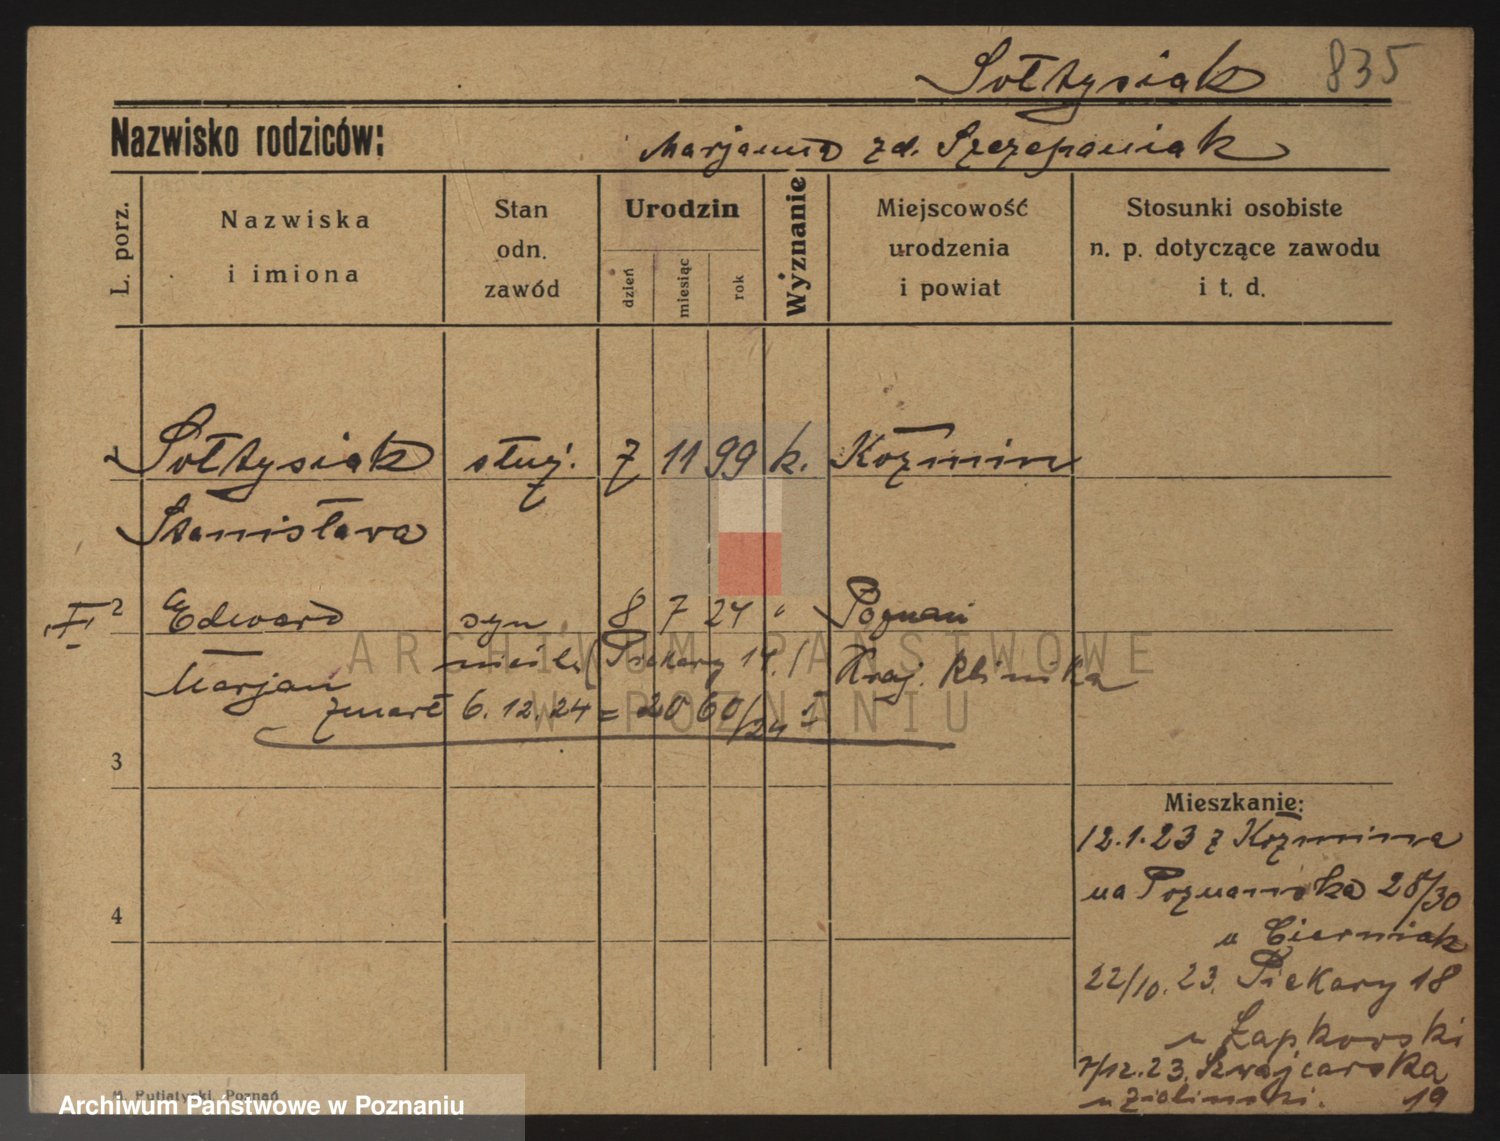 Sołtysiak 835
Nazwisko rodziców: Marjanna zd. Szczepaniak
L. porz.
Nazwiska
i imiona
Stan
odn.
zawód
Urodzin
dzień
miesiąc
rok
Wyznanie
Miejscowość
urodzenia
i powiat
Stosunki osobiste
n. p. dotyczące zawodu
i t. d.
1 Sołtysiak służ. 7 11 99 k. Kozmin
Stanisława
I 2 Edward syn 8 7 24 " Poznań
Marjan nieśl. (Piekary 14.) Kraj. Klinika
zmarł 6.12.24 = 2060/24 I
3
4
Mieszkanie:
12.1.23 z Kozmina
na Poznańska 28/30
u Cierniak
22/10.23. Piekary 18
u Łapkowski
7/12.23. Szwajcarska
u Zieliński. 19
ARCHIWUM PAŃSTWOWE
W POZNANIU
Poznań
Archiwum Państwowe w Poznaniu